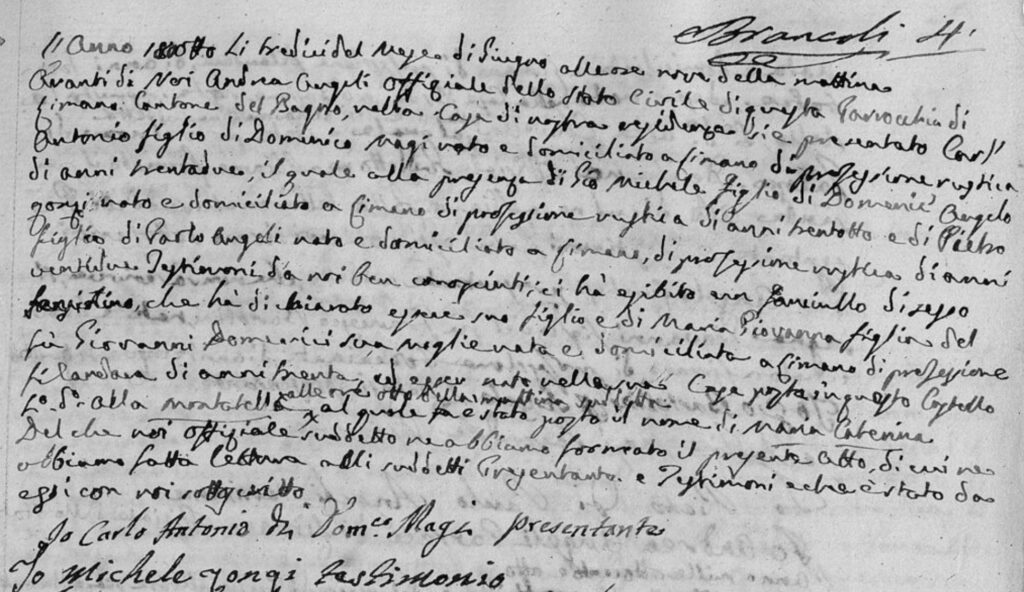 Brancoli 4.
L'Anno 1808 Li tredici del Mese di Giugno alle ore nove della mattina
Avanti di Noi Andrea Angeli Offiziale dello Stato Civile di questa Parrocchia di
Cimano Cantone del Bagno, nella Casa di nostra residenza si è presentato Carl'
Antonio figlio di Domenico Magi nato e domiciliato a Cimano di professione rustica
di anni trentadue, il quale alla presenza di Gio Michele Figlio di Domenic' Angelo
gongi nato e domiciliato a Cimano di professione rustica di anni trentotto e di Pietro
figlio di Paolo Angeli nato e domiciliato a Cimano, di professione rustica di anni
ventidue Testimoni da noi ben conosciuti, ci hà esibito un fanciullo di sesso
che hà dichiarato essere suo figlio e di Maria Giovanna figlia del
fù Giovanni Domenici sua moglie nata e domiciliata a Cimano di professione
filandara di anni trenta, ed esser nato nella sua Casa posta in questo Castello
L.o d.o alla alle ore otto della mattina suddetta al quale è stato posto il nome di Maria Caterina
Del che noi Offiziale suddetto ne abbiamo formato il presente Atto, di cui ne
abbiamo fatta lettura alli suddetti Presentante e Testimoni e che è stato da
essi con noi sottoscritto
Io Carlo Antonio di Dom.co Magi presentante
Io Michele gongi testimonio